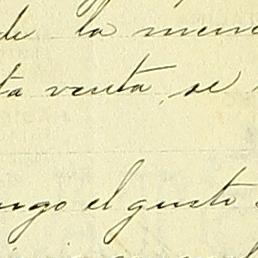 de la
ta venta, se
ngo el gusto